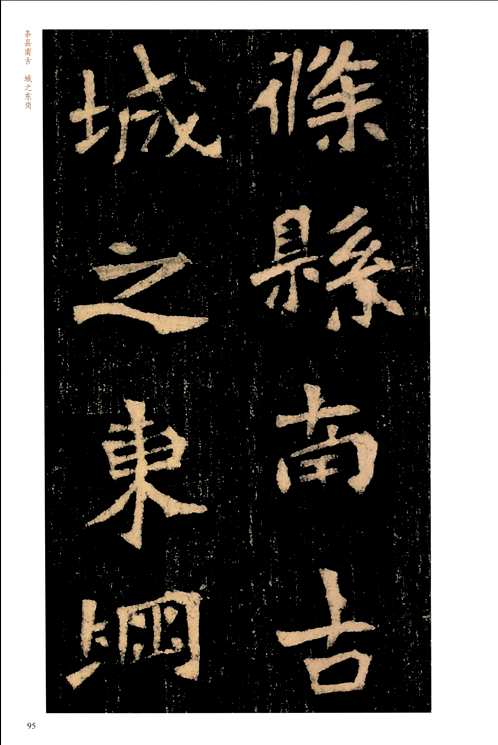 条县南古 城之东岗
條縣南古
城之東堈
95